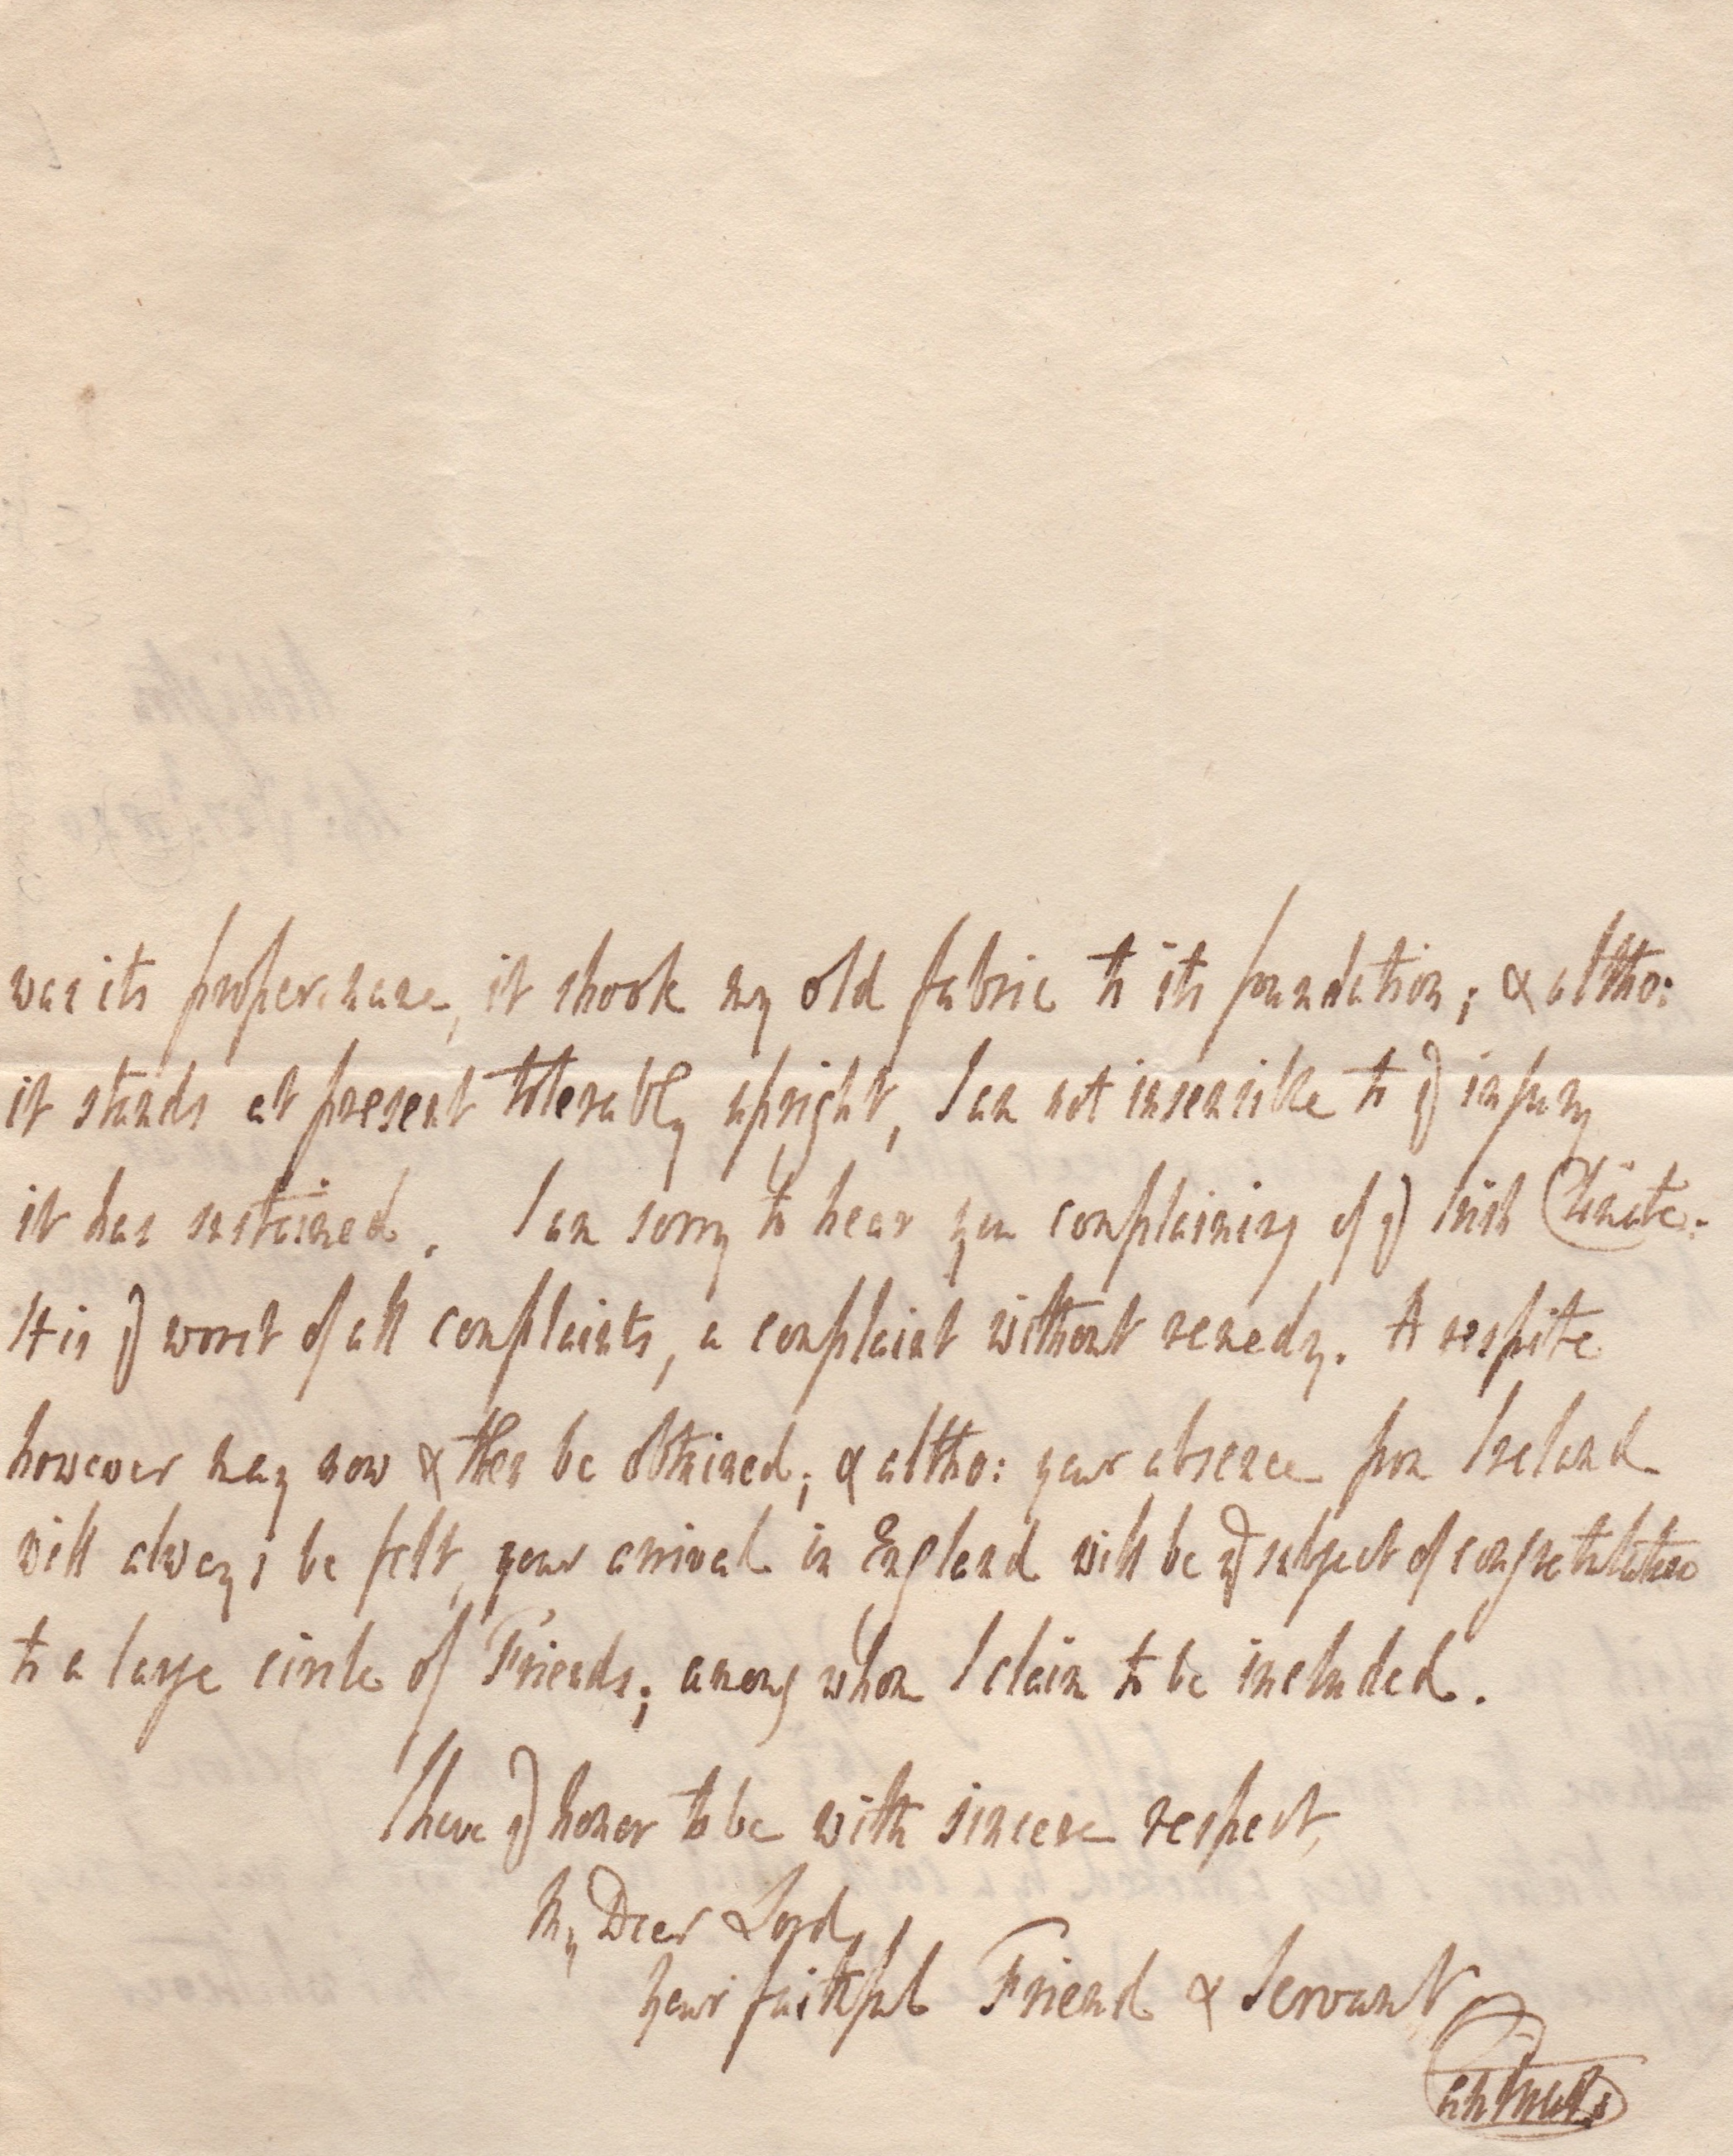 was its proper name, it shook my old fabric to its foundation; & altho:
it stands at present tolerably upright, I am not insensible to ye injury
it has sustained. I am sorry to hear you complaining of ye Irish Climate.
It is ye worst of all complaints, a complaint without remedy. A respite
however may now & then be obtained; & altho: your absence from Ireland
will always be felt, your arrival in England will be ye subject of congratulation
to a large circle of Friends; among whom I claim to be included.
I have ye honor to be with sincere respect,
My Dear Lord,
your faithful Friend & Servant,